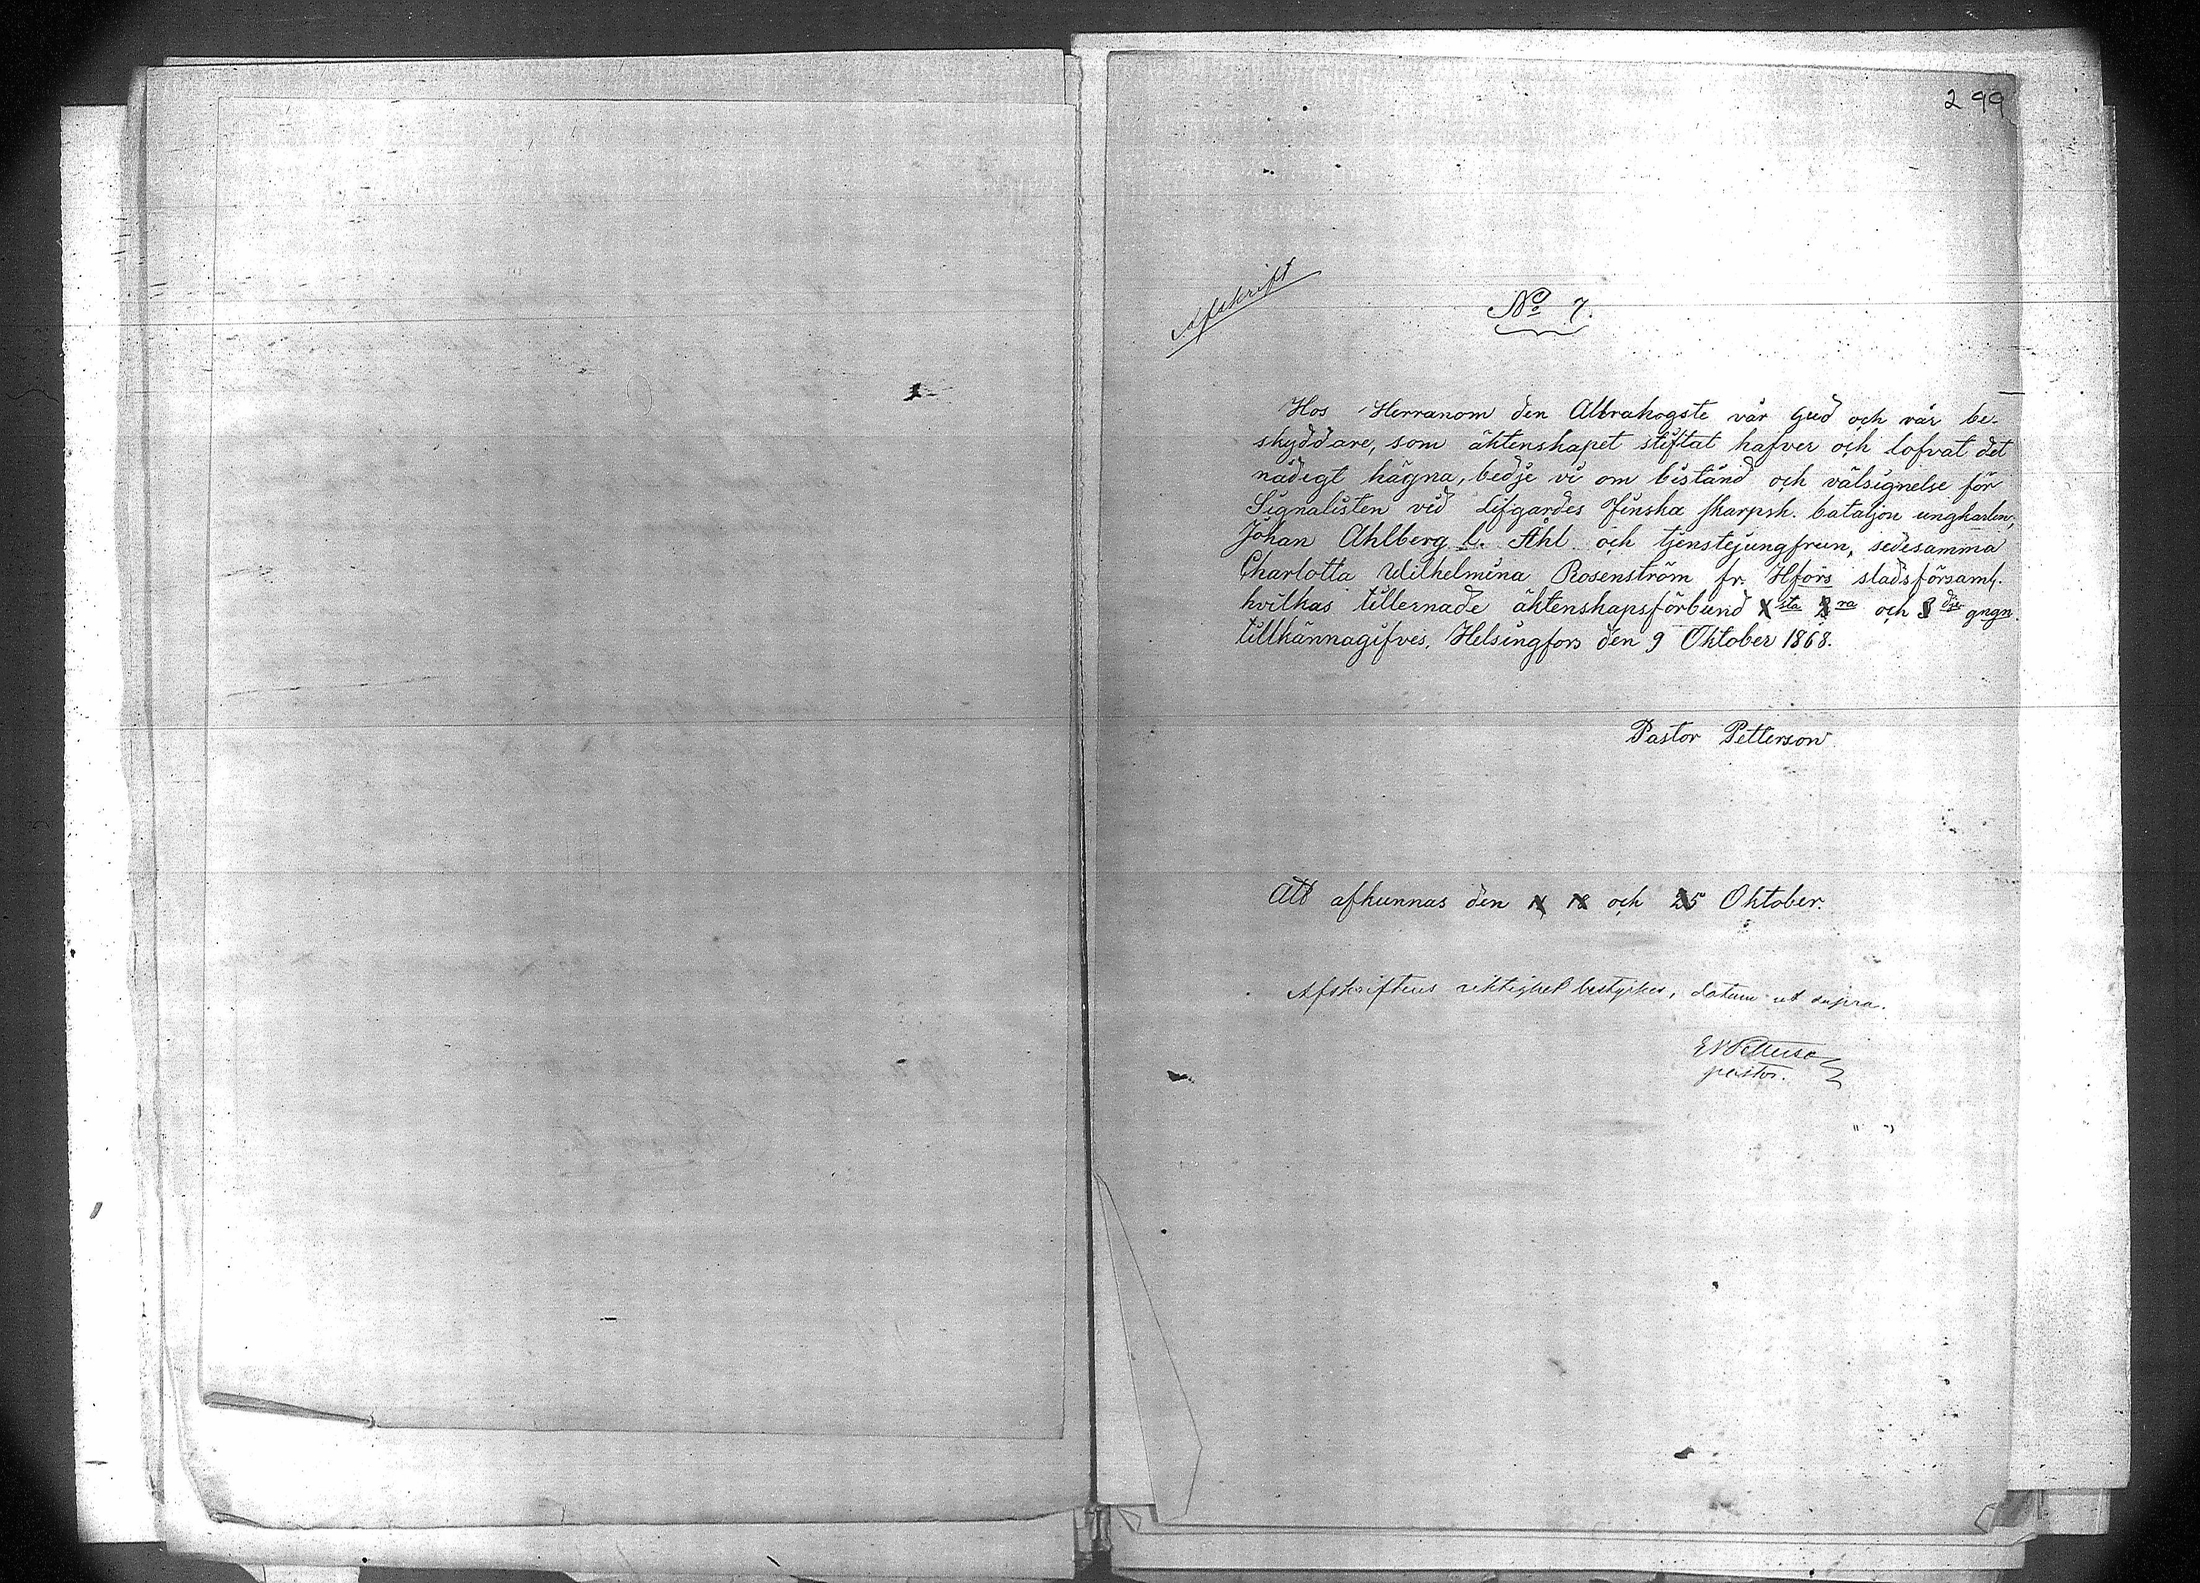 299
Afskrift
No 7.
Hos Herranom den Allrahögste vår Gud och vår be-
skyddare, som äktenskapet stiftat hafver och lofvat det
nådigt hägna, bedje vi om bistånd och välsignelse för
Signalisten vid Lifgardes Finska skarpsk. bataljon ungkarlen,
Johan Ahlberg l. Åhl och tjenstejungfrun, sedesamma
Charlotta Wilhelmina Rosenström fr. Hfors stadsförsaml.
hvilkas tillernade äktenskapsförbund 1sta 2ra och 3dje gngn.
tillkännagifves. Helsingfors den 9 Oktober 1868.
Pastor Petterson
Att afkunnas den 11 18 och 25 Oktober.
Afskriftens riktighet bestyrkes, datum ut supra.
pastor.